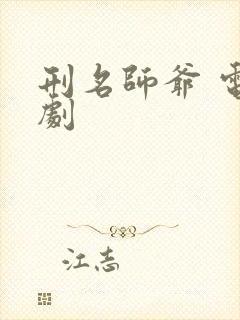 刑名師爺 電
劇
江志